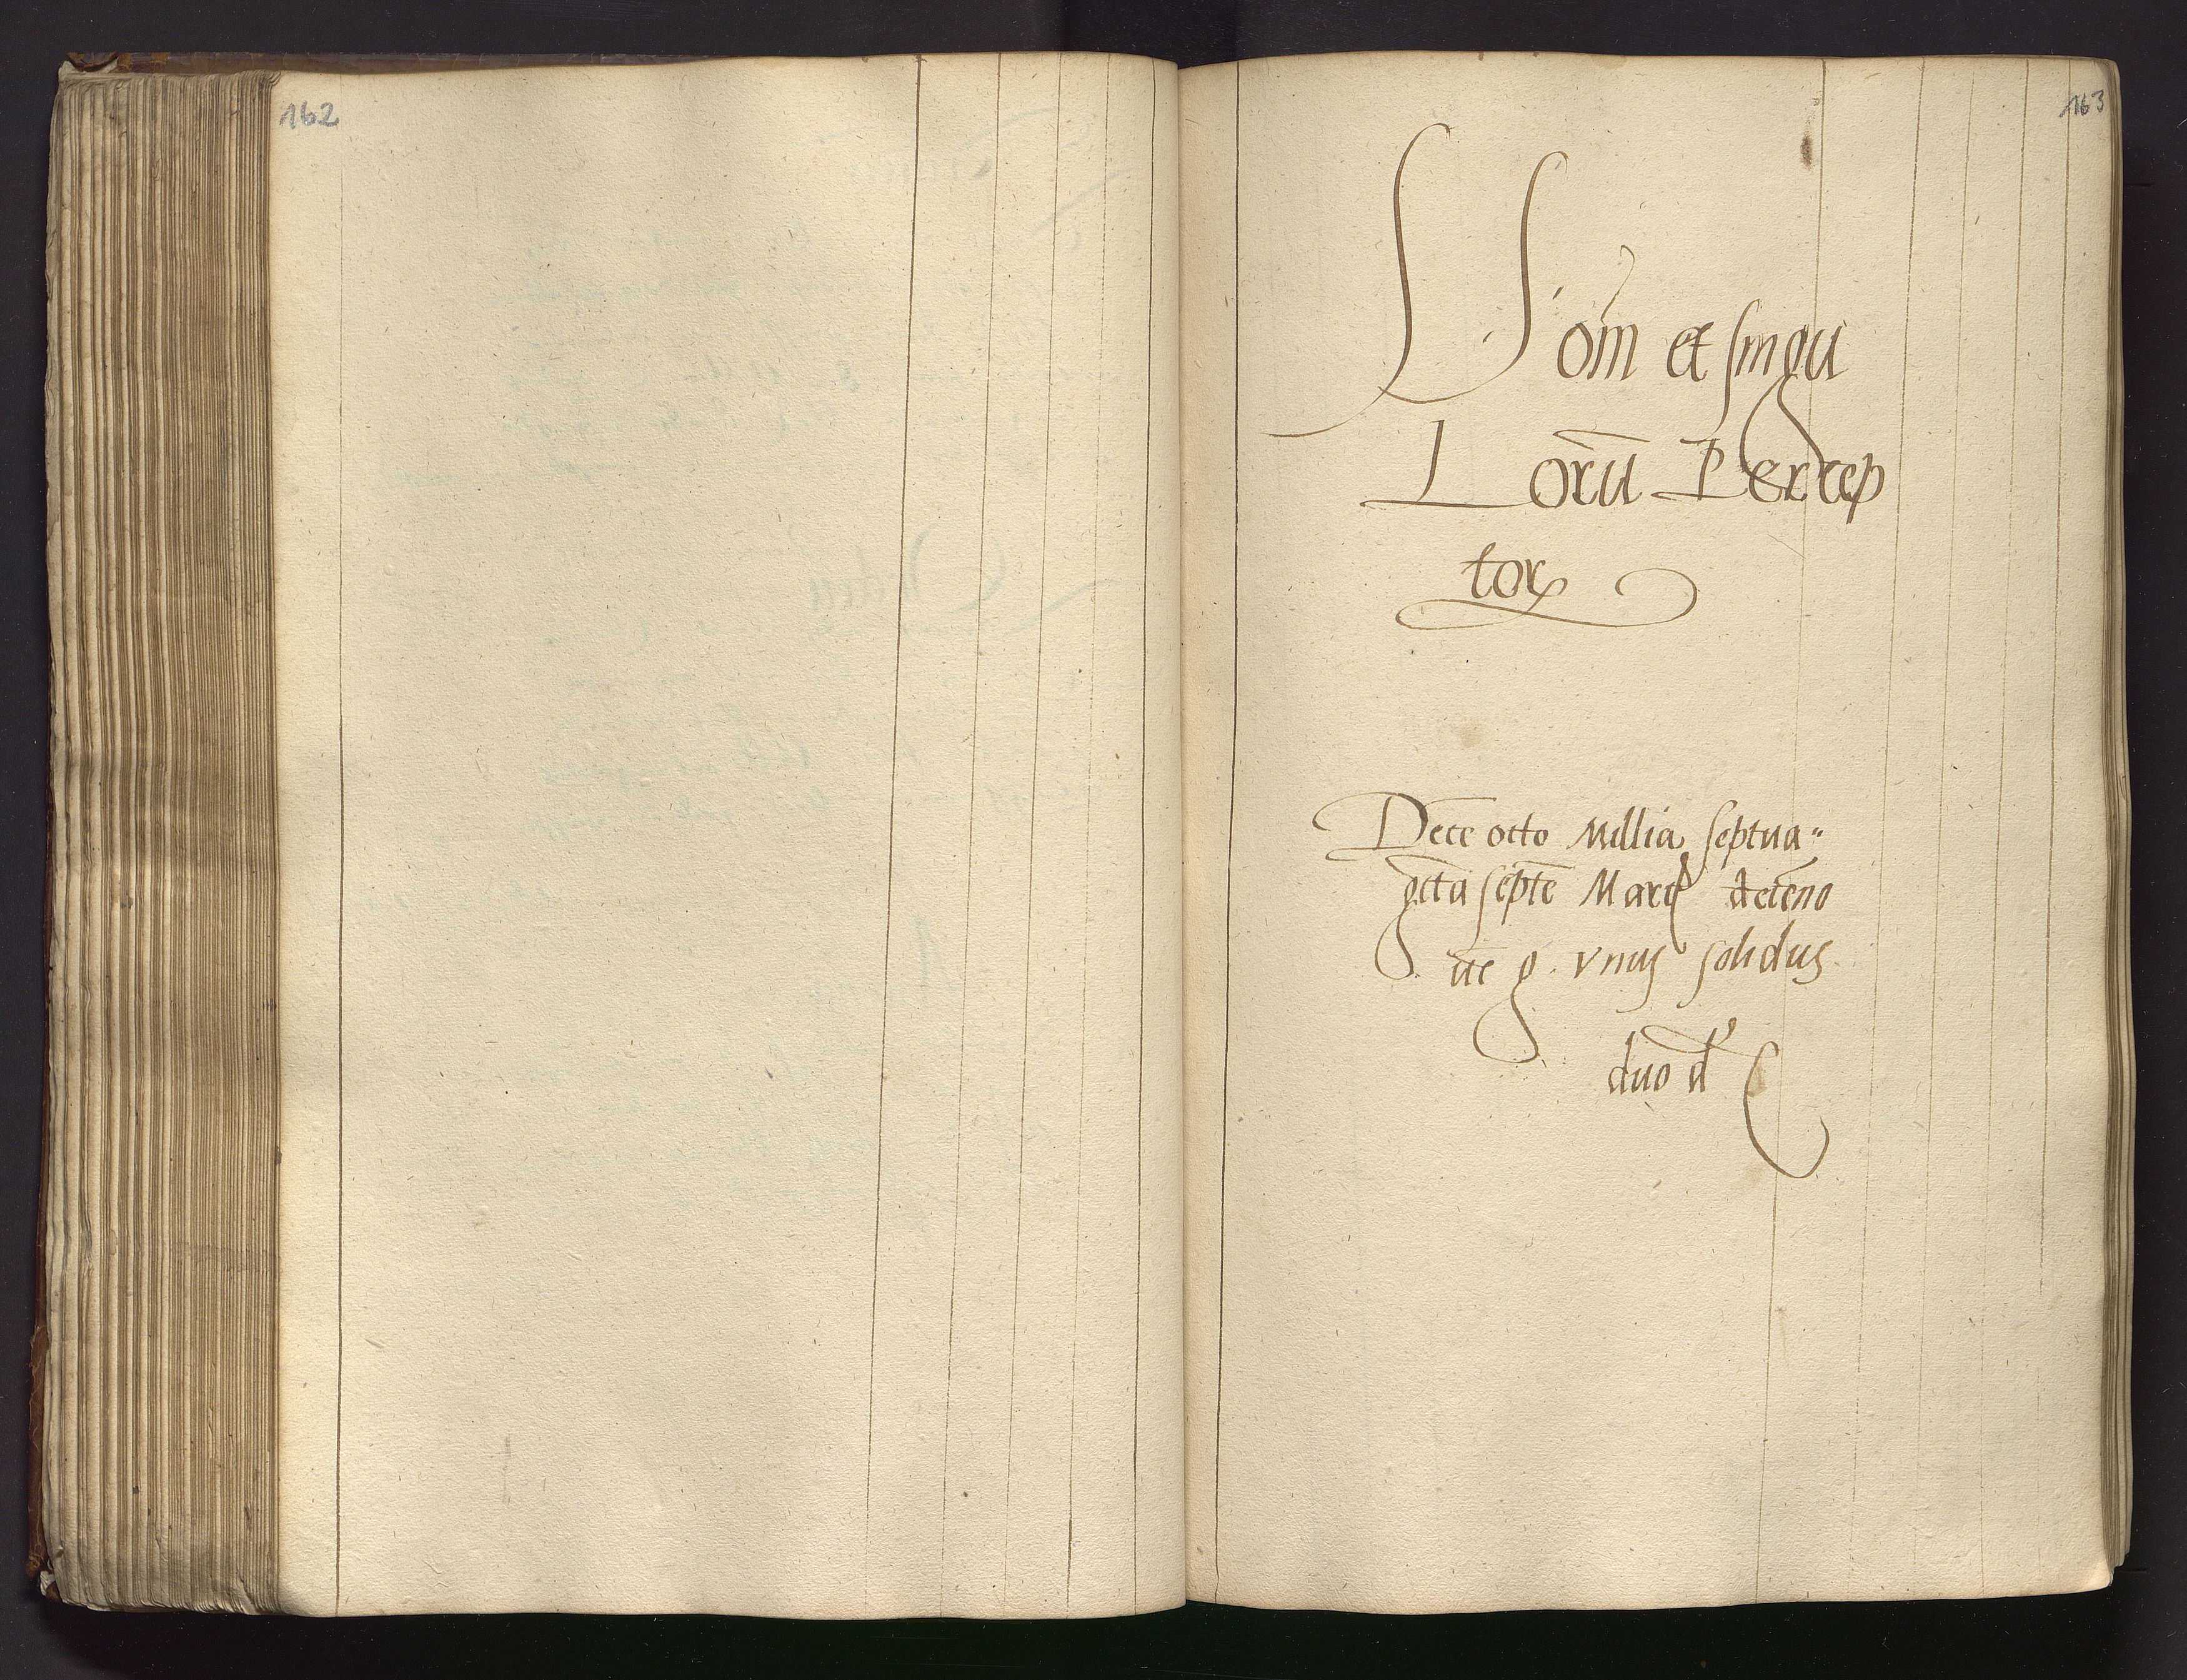 162
163
S om̄ et singu
L orū Percep
torꝝ
Dece octo Millia septua〃
gīta septē Marcꝭ decēno
uē g. vnus solidus
duo d